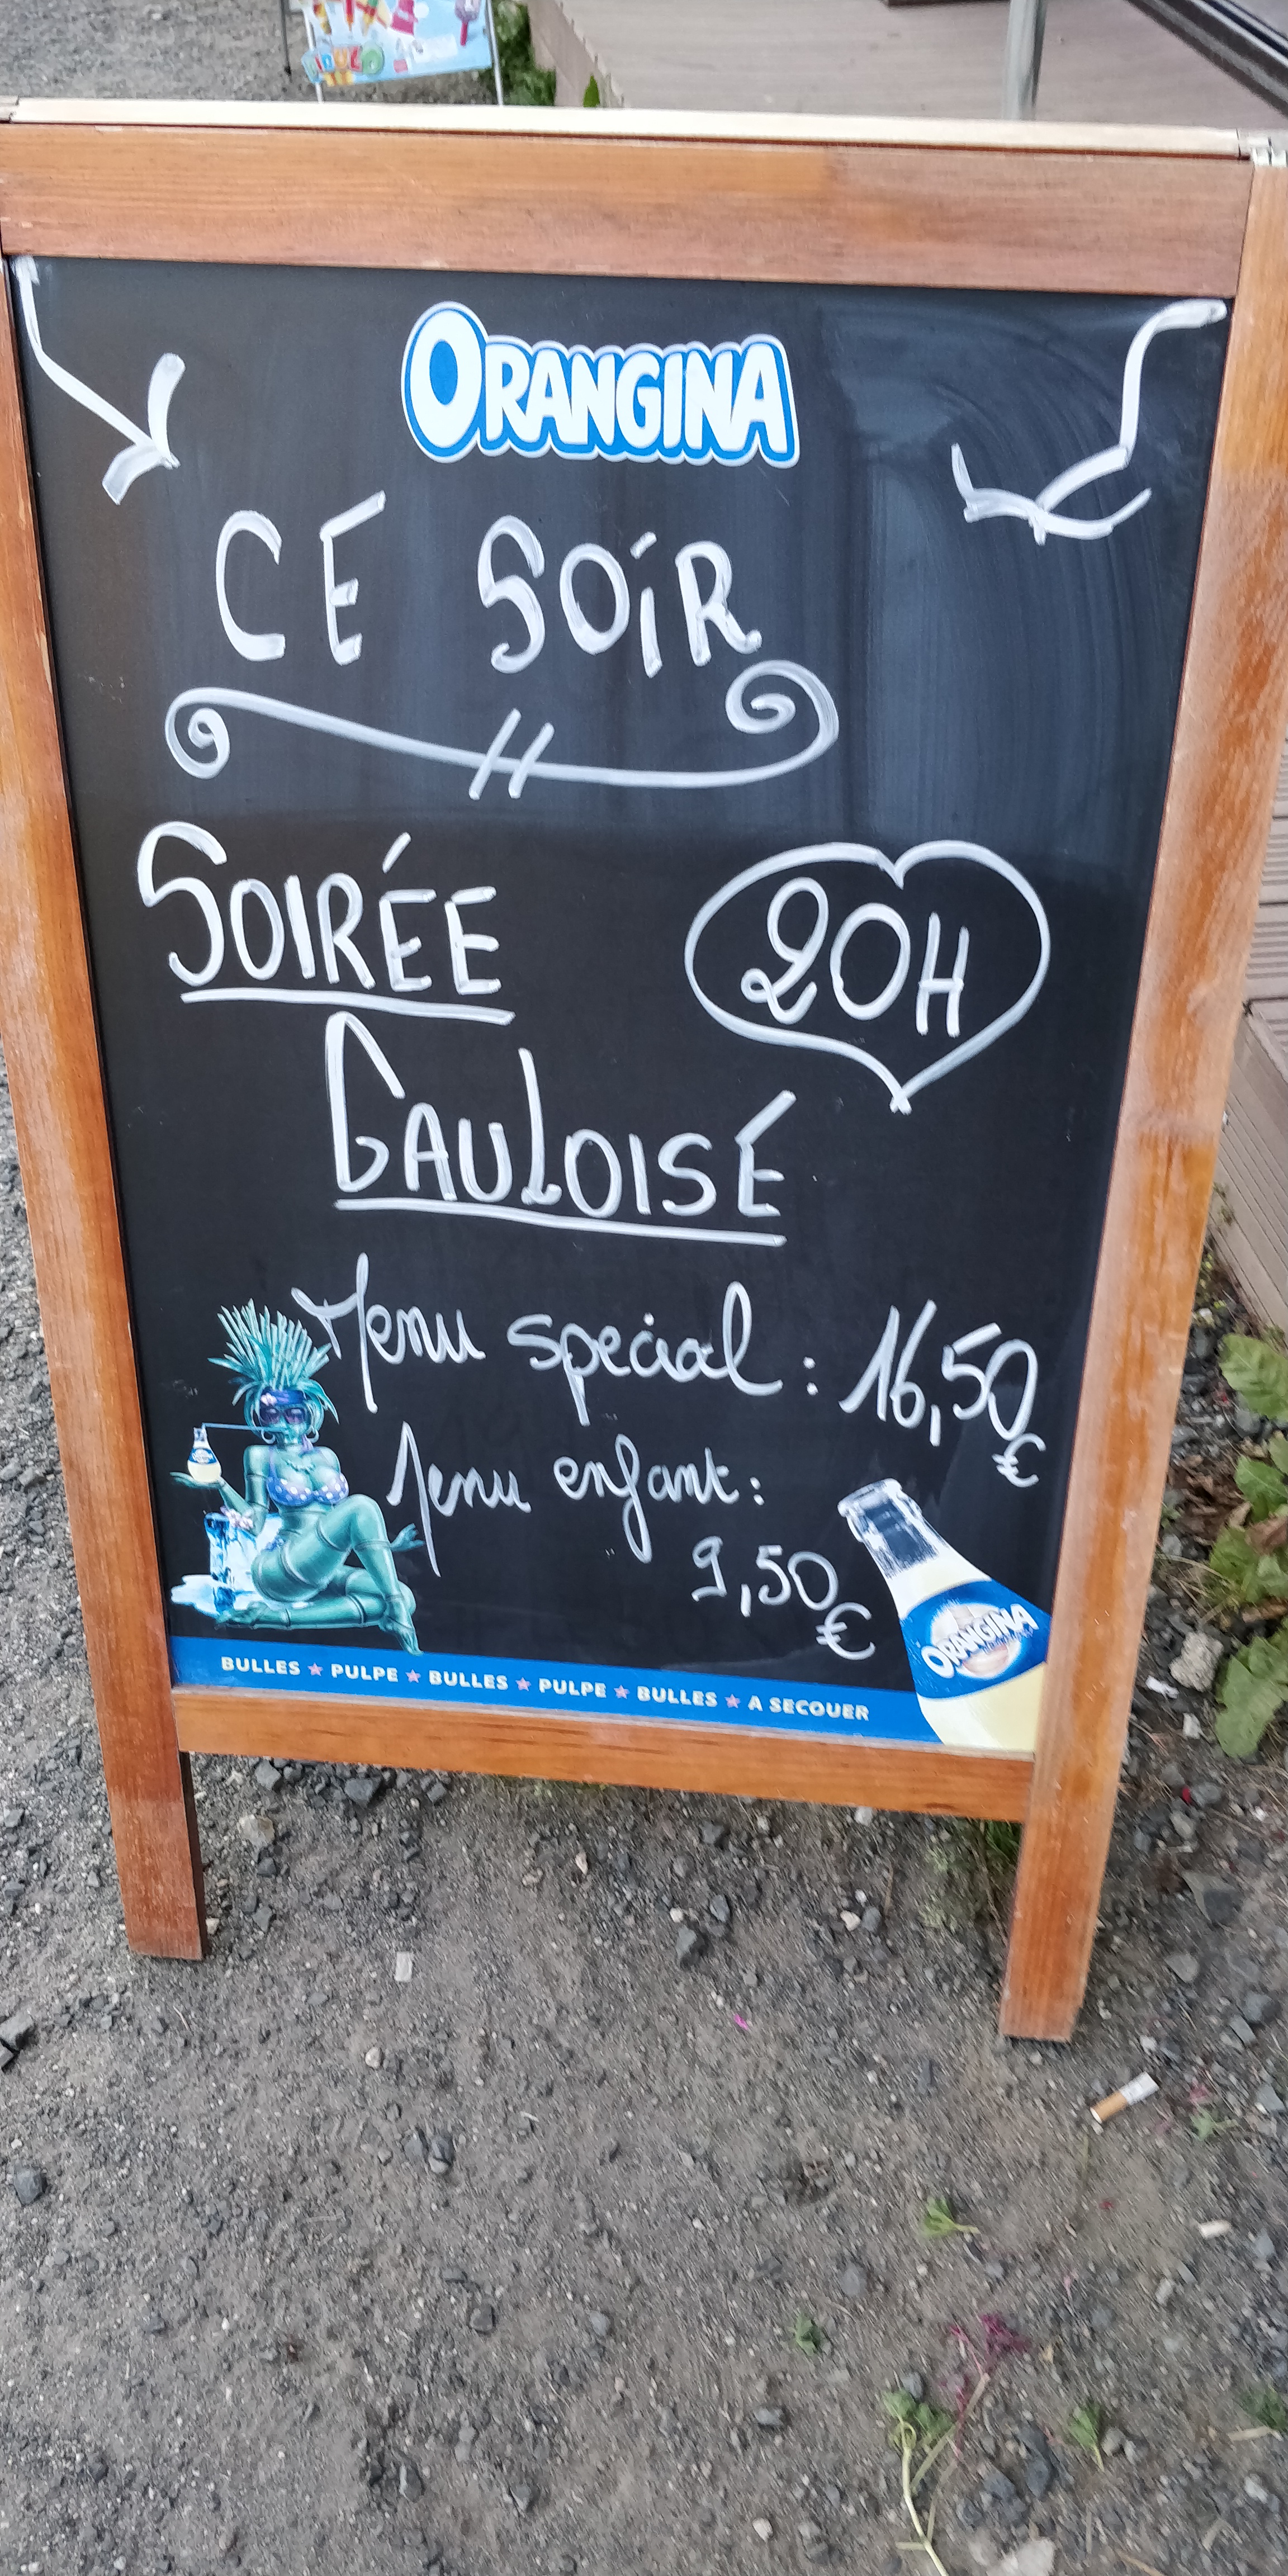 ORANGINA
CE SOIR
SOIRÉE
20H
GAULOISE
Menu special : 16,50 €
Menu enfant :
9,50 €
ORANGINA
BULLES ★ PULPE ★ BULLES ★ PULPE ★ BULLES ★ A SECOUER